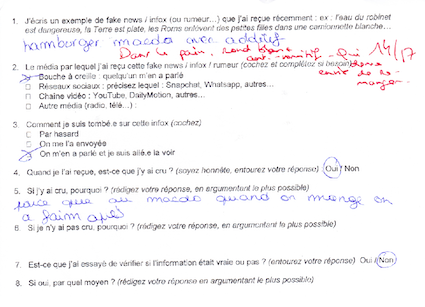 1. J'écris un exemple de fake news / infox (ou rumeur…) que j'ai reçue récemment : ex : l'eau du robinet
est dangereuse, la Terre est plate, les Roms enlèvent des petites filles dans une camionnette blanche…
hamburger macdo avec additif
Dans le pain. rond blanc
anti-vomitif. qui
donne
envie de
manger
14/17
2. Le média par lequel j'ai reçu cette fake news / infox / rumeur (cochez et complétez si besoin)
Bouche à oreille : quelqu'un m'en a parlé
Réseaux sociaux : précisez lequel : Snapchat, Whatsapp, autres…
Chaîne vidéo : YouTube, DailyMotion, autres…
Autre média (radio, télé…) :
3. Comment je suis tombé.e sur cette infox (cochez)
Par hasard
On me l'a envoyée
On m'en a parlé et je suis allé.e la voir
4. Quand je l'ai reçue, est-ce que j'y ai cru ? (soyez honnête, entourez votre réponse) Oui / Non
5. Si j'y ai cru, pourquoi ? (rédigez votre réponse, en argumentant le plus possible)
parce que au macdo quand on mange on
a faim après
6. Si je n'y ai pas cru, pourquoi ? (rédigez votre réponse, en argumentant le plus possible)
7. Est-ce que j'ai essayé de vérifier si l'information était vraie ou pas ? (entourez votre réponse) Oui / Non
8. Si oui, par quel moyen ? (rédigez votre réponse en argumentant le plus possible)